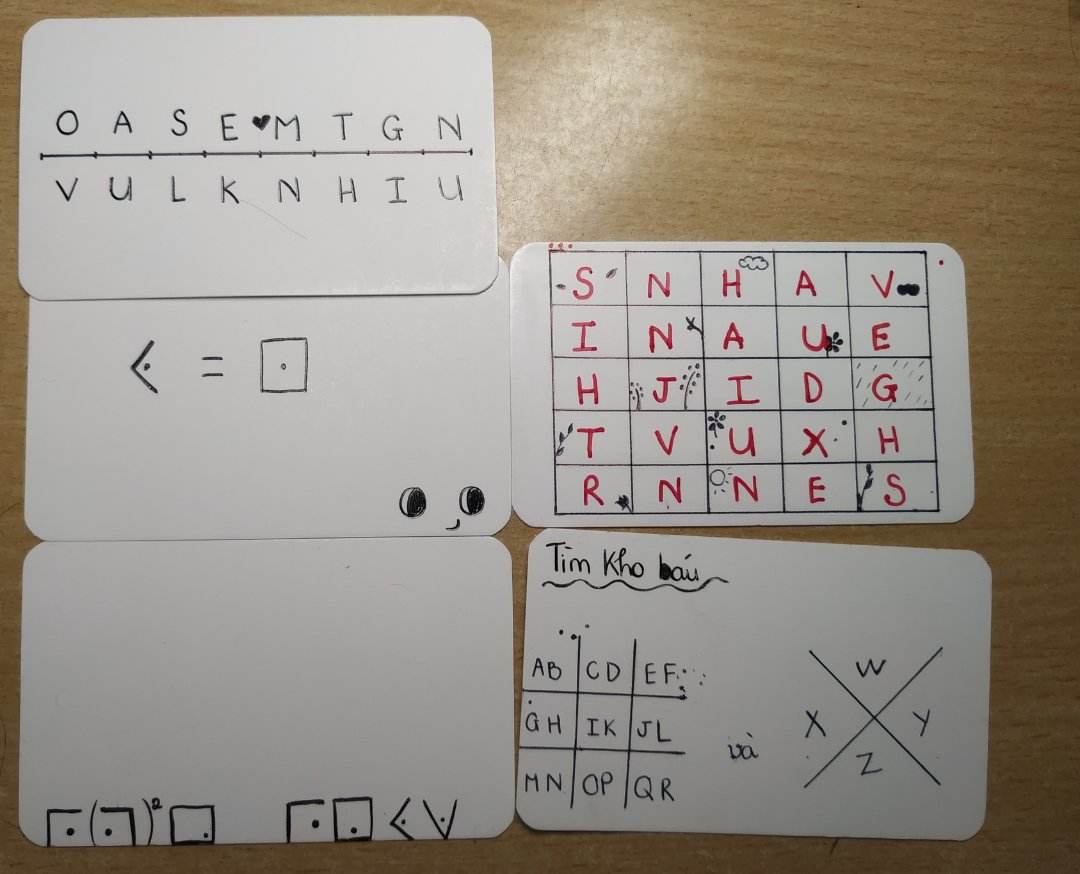 O A S E ♥ M T G N
V U L K N H I U
=
S N H A V
I N A U E
H J I D G
T V U X H
R N N E S
( )²
Tìm Kho báu
AB CD EF
GH IK JL
MN OP QR
và
W
X Y
Z